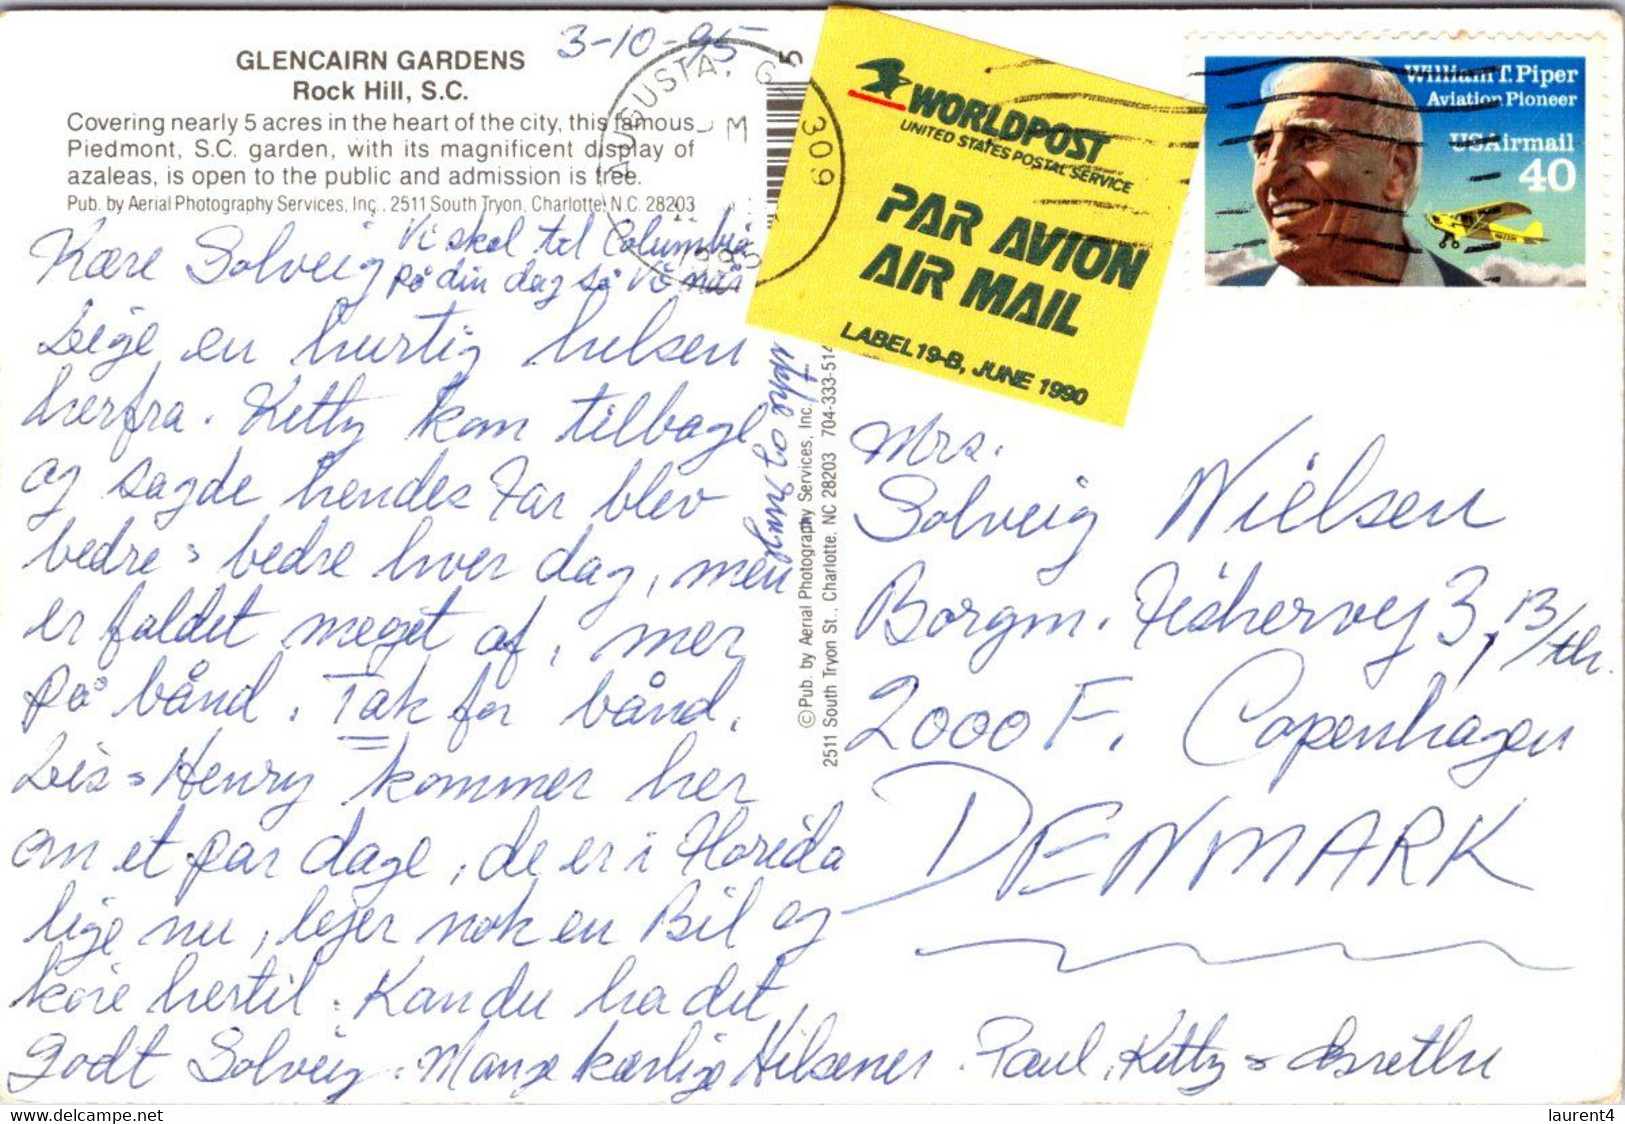 GLENCAIRN GARDENS
Rock Hill, S.C.
Covering nearly 5 acres in the heart of the city, this famous
Piedmont, S.C. garden, with its magnificent display of
azaleas, is open to the public and admission is free.
Pub. by Aerial Photography Services, Inc., 2511 South Tryon, Charlotte, N.C. 28203
3-10-95
AUGUSTA, G
M
309
1995
5
WORLDPOST
UNITED STATES POSTAL SERVICE
PAR AVION
AIR MAIL
LABEL 19-B, JUNE 1990
William T. Piper
Aviation Pioneer
USAirmail
40
Vi skal til Columbia
på din dag så vi når
ikke og ringe
Kære Solveig
Lige en hurtig hilsen
herfra. Ketty kom tilbage
og sagde hendes Far blev
bedre & bedre hver dag, men
er faldet meget af, mer
på bånd. Tak for bånd.
Lis & Henry kommer her
om et par dage, de er i Florida
lige nu, lejer nok en Bil og
køre hertil. Kan du ha det
godt Solveig. Mange kærlige Hilsener. Paul, Ketty &
© Pub. by Aerial Photography Services, Inc.
2511 South Tryon St., Charlotte, NC 28203 704-333-514
Mrs.
Solveig Nielsen
Borgm. Fischervej 3, 13/th.
2000 F. Copenhagen
DENMARK
laurent4